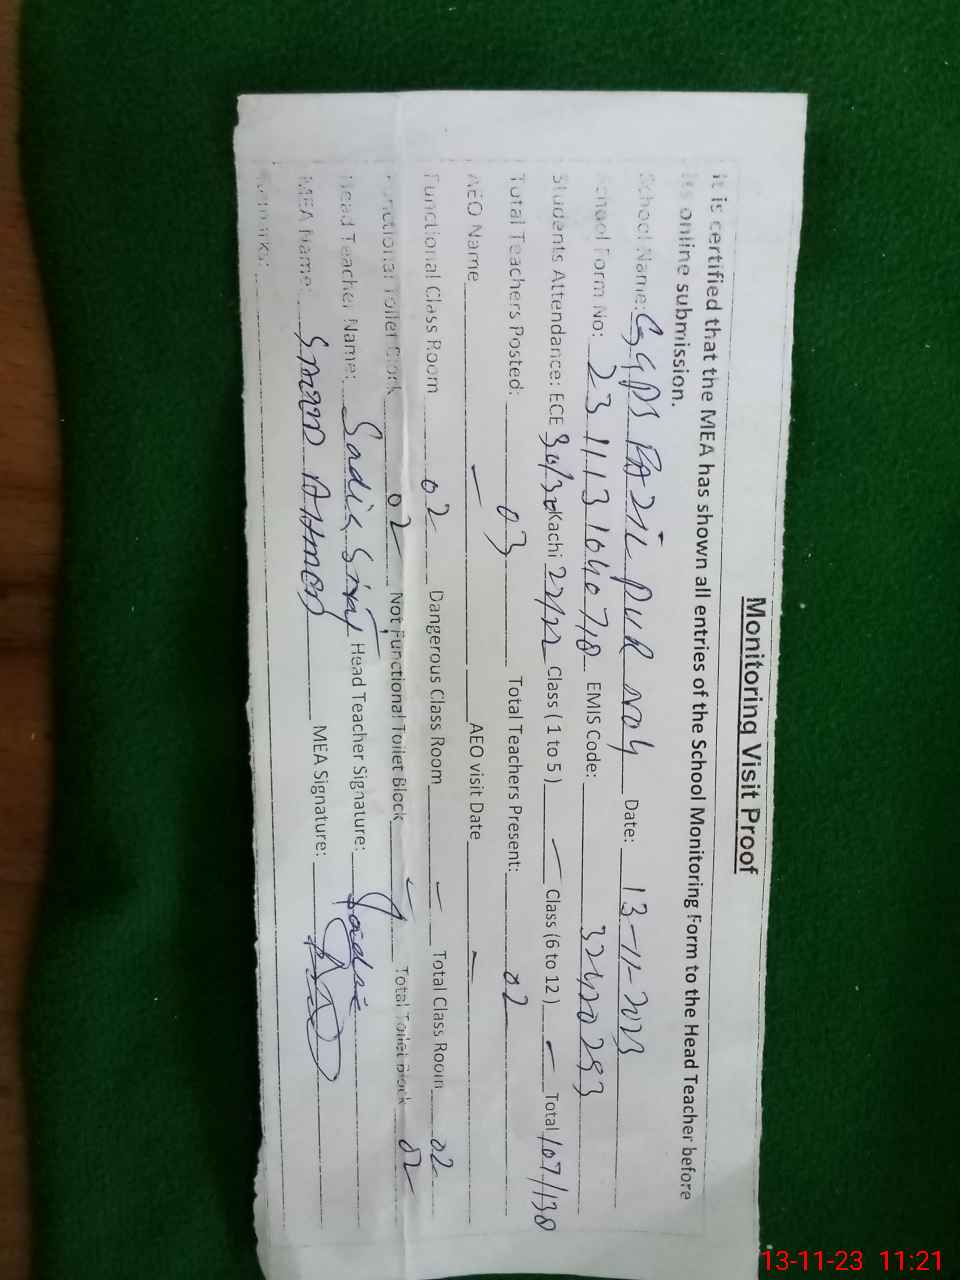 Monitoring Visit Proof
It is certified that the MEA has shown all entries of the School Monitoring Form to the Head Teacher before
its online submission.
School Name: GGPS FAZIL PUR NO 4 Date: 13-11-2023
School Form No: 23 11 13 1040 718 EMIS Code: 32420253
Students Attendance: ECE 30/30 Kachi 22/22 Class (1 to 5) — Class (6 to 12) — Total 107/138
Total Teachers Posted: 03 Total Teachers Present: 02
AEO Name — AEO visit Date —
Functional Class Room 02 Dangerous Class Room — Total Class Room 02
Functional Toilet Block 02 Not Functional Toilet Block — Total Toilet Block 02
Head Teacher Name: Sadia Head Teacher Signature: Sadia
MEA Name: AHmed MEA Signature:
Remarks:
13-11-23 11:21